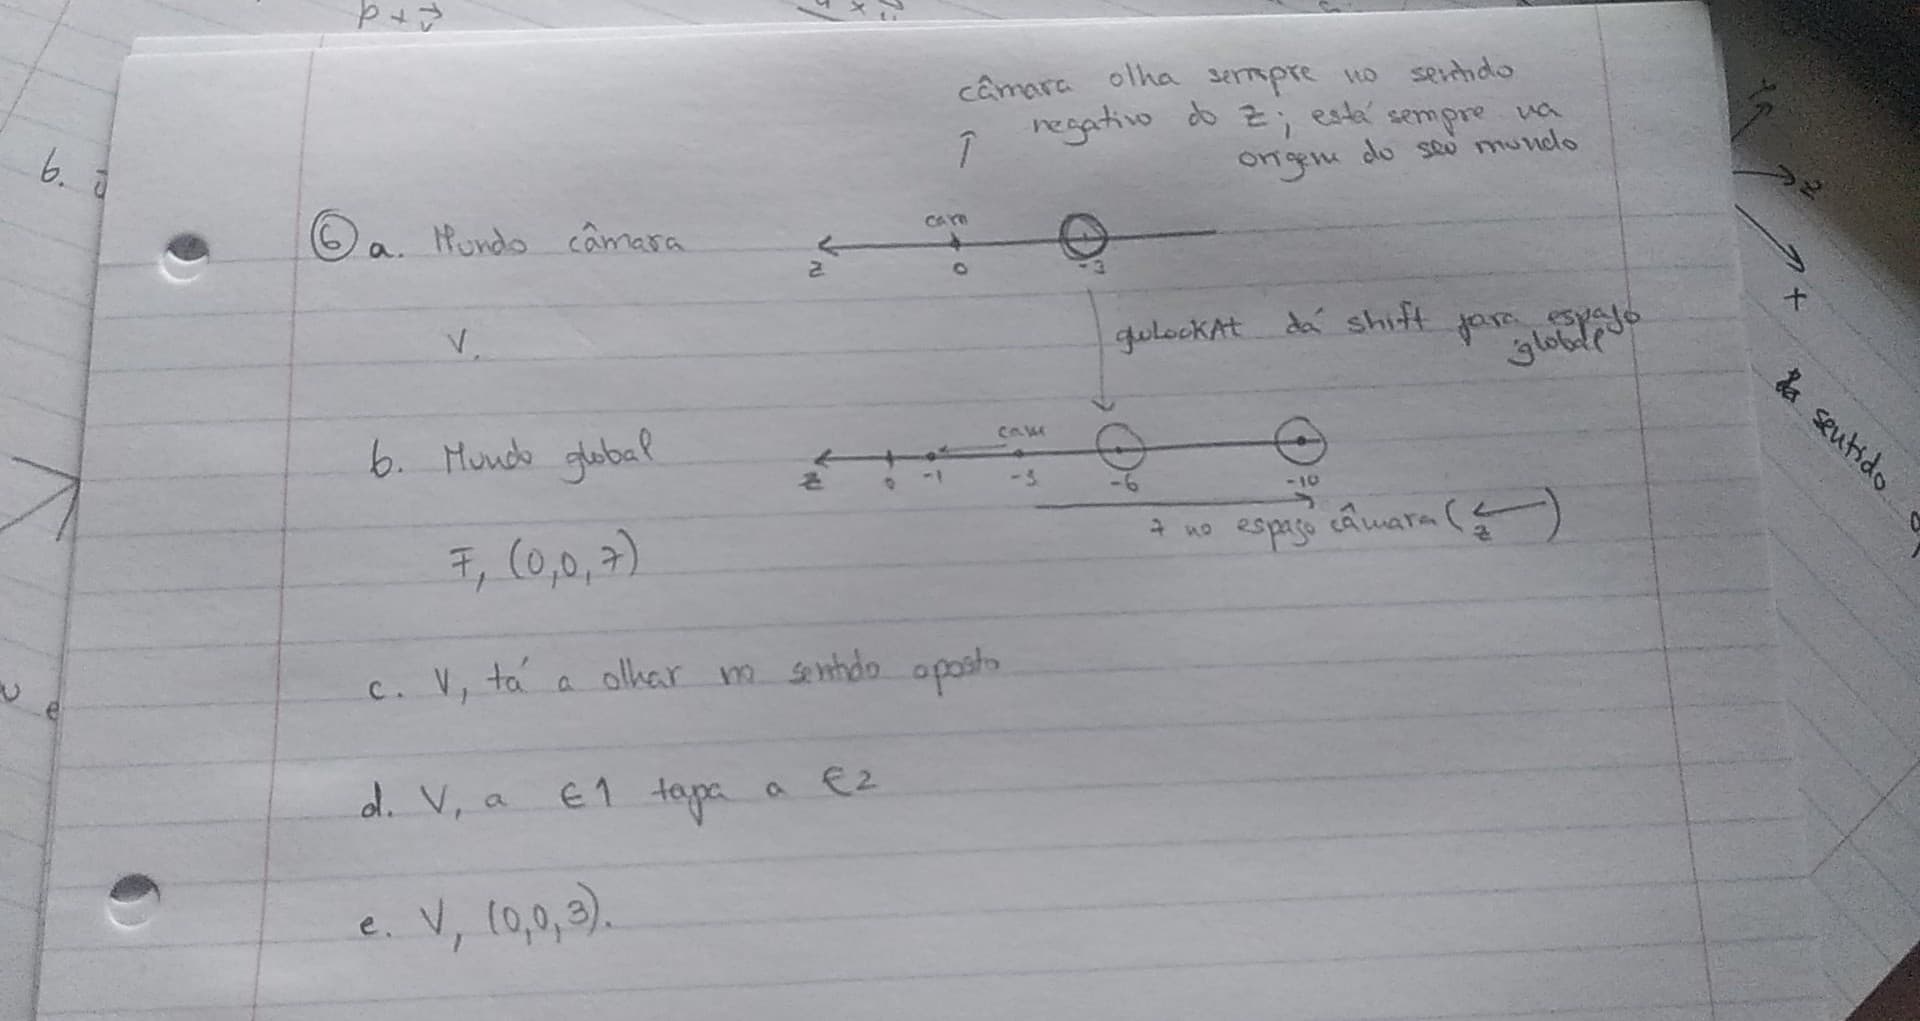 p + v
câmara olha sempre no sentido
negativo do z; está sempre na
origem do seu mundo
6.
⑥ a. Mundo câmara
cam
z 0 -3
V.
gluLookAt dá shift para espaço
global
b. Mundo global
cam
z 0 -1 -3 -6 -10
7 no espaço câmara (z)
F, (0,0,7)
c. V, tá a olhar no sentido oposto
d. V, a E1 tapa a E2
e. V, (0,0,3).
z
+
sentido
e